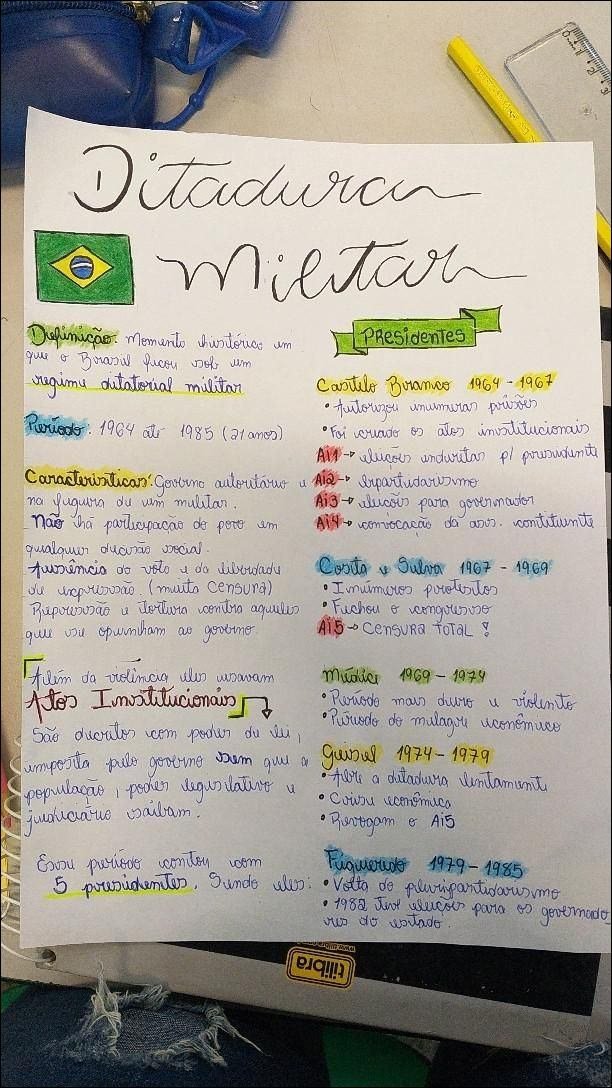 Ditadura
Militar
Definição: Momento histórico em
que o Brasil ficou sob um
regime ditatorial militar
Período: 1964 até 1985 (21 anos)
Características: Governo autoritário e
na figura de um militar.
Não há participação do povo em
qualquer decisão social.
Ausência do voto e da liberdade
de expressão. (muita censura)
Repressão e tortura contra aqueles
que se opunham ao governo.
Além da violência eles usavam
Atos Institucionais
São decretos com poder de lei,
imposta pelo governo sem que a
população, poder legislativo e
judiciário saibam.
Esse período contou com
5 presidentes. Sendo eles:
PRESIDENTES
Castelo Branco 1964 - 1967
• Autorizou inumeras prisões
• Foi criado os atos institucionais
Ai1 → eleições indiretas p/ presidente
Ai2 → bipartidarismo
Ai3 → eleições para governador
Ai4 → convocação da ass. contituinte
Costa e Silva 1967 - 1969
• Inúmeros protestos
• Fechou o congresso
Ai5 → CENSURA TOTAL !
Médici 1969 - 1974
• Período mais duro e violento
• Período do milagre econômico
Geisel 1974 - 1979
• Abre a ditadura lentamente
• Crise econômica
• Revogam o Ai5
Figueredo 1979 - 1985
• Volta do pluripartidarismo
• 1982 teve eleições para os governado
res do estado.
tilibra
0 1 2 3